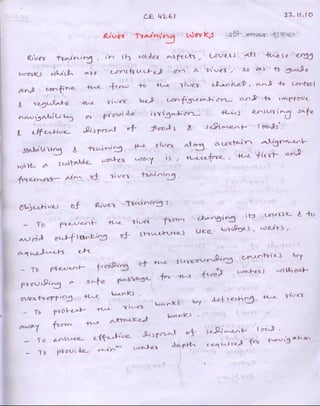 CE 4261
22.11.10
River Training Works
River training, in its wider aspects, covers all those engg
works which are constructed on a river, so as to guide
and confine the flow to the river channel, and to control
& regulate the river bed configuration and to improve
navigability or provide irrigation, thus ensuring safe
& effective disposal of floods & sediment loads.
Stabilizing & training the river along a certain alignment
with a suitable water way is, therefore, the first and
foremost aim of river training.
Objectives of River Training:
- To prevent the river from changing its course & to
avoid outflanking of structures like bridges, weirs,
aqueducts etc
- To prevent flooding of the surrounding countries by
providing a safe passage for the flood waters without
overtopping the banks.
- To protect the river banks by deflecting the river
away from the attacked banks.
- To ensure effective disposal of sediment load.
- To provide min^m water depth required for navigation.